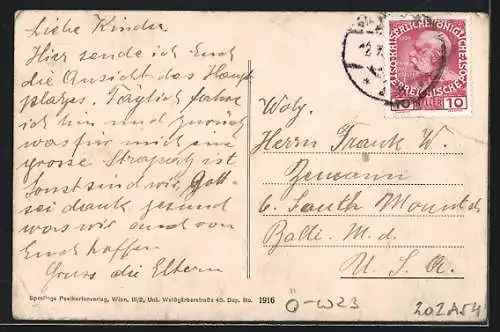 Liebe Kinder.
Hier sende ich Euch
die Ansicht das Haupt
platzes. Täglich fahre
ich hin und zurück
was für mich eine
grosse Strapatz ist
Sonst sind wir, Gott-
sei dank gesund
was wir auch von
Euch hoffen
Gruss die Eltern
KAISERLICHE KÖNIGLICHE
ÖSTERREICHISCHE
HELLER 10
Herrn Frank W.
Zemann
6. South Mount St
Balti. M.d.
U. S. A.
Sperlings Postkartenverlag, Wien, III/2, Unt. Weißgärberstraße 45. Dep. No. 1916
Ö-W23
202A54